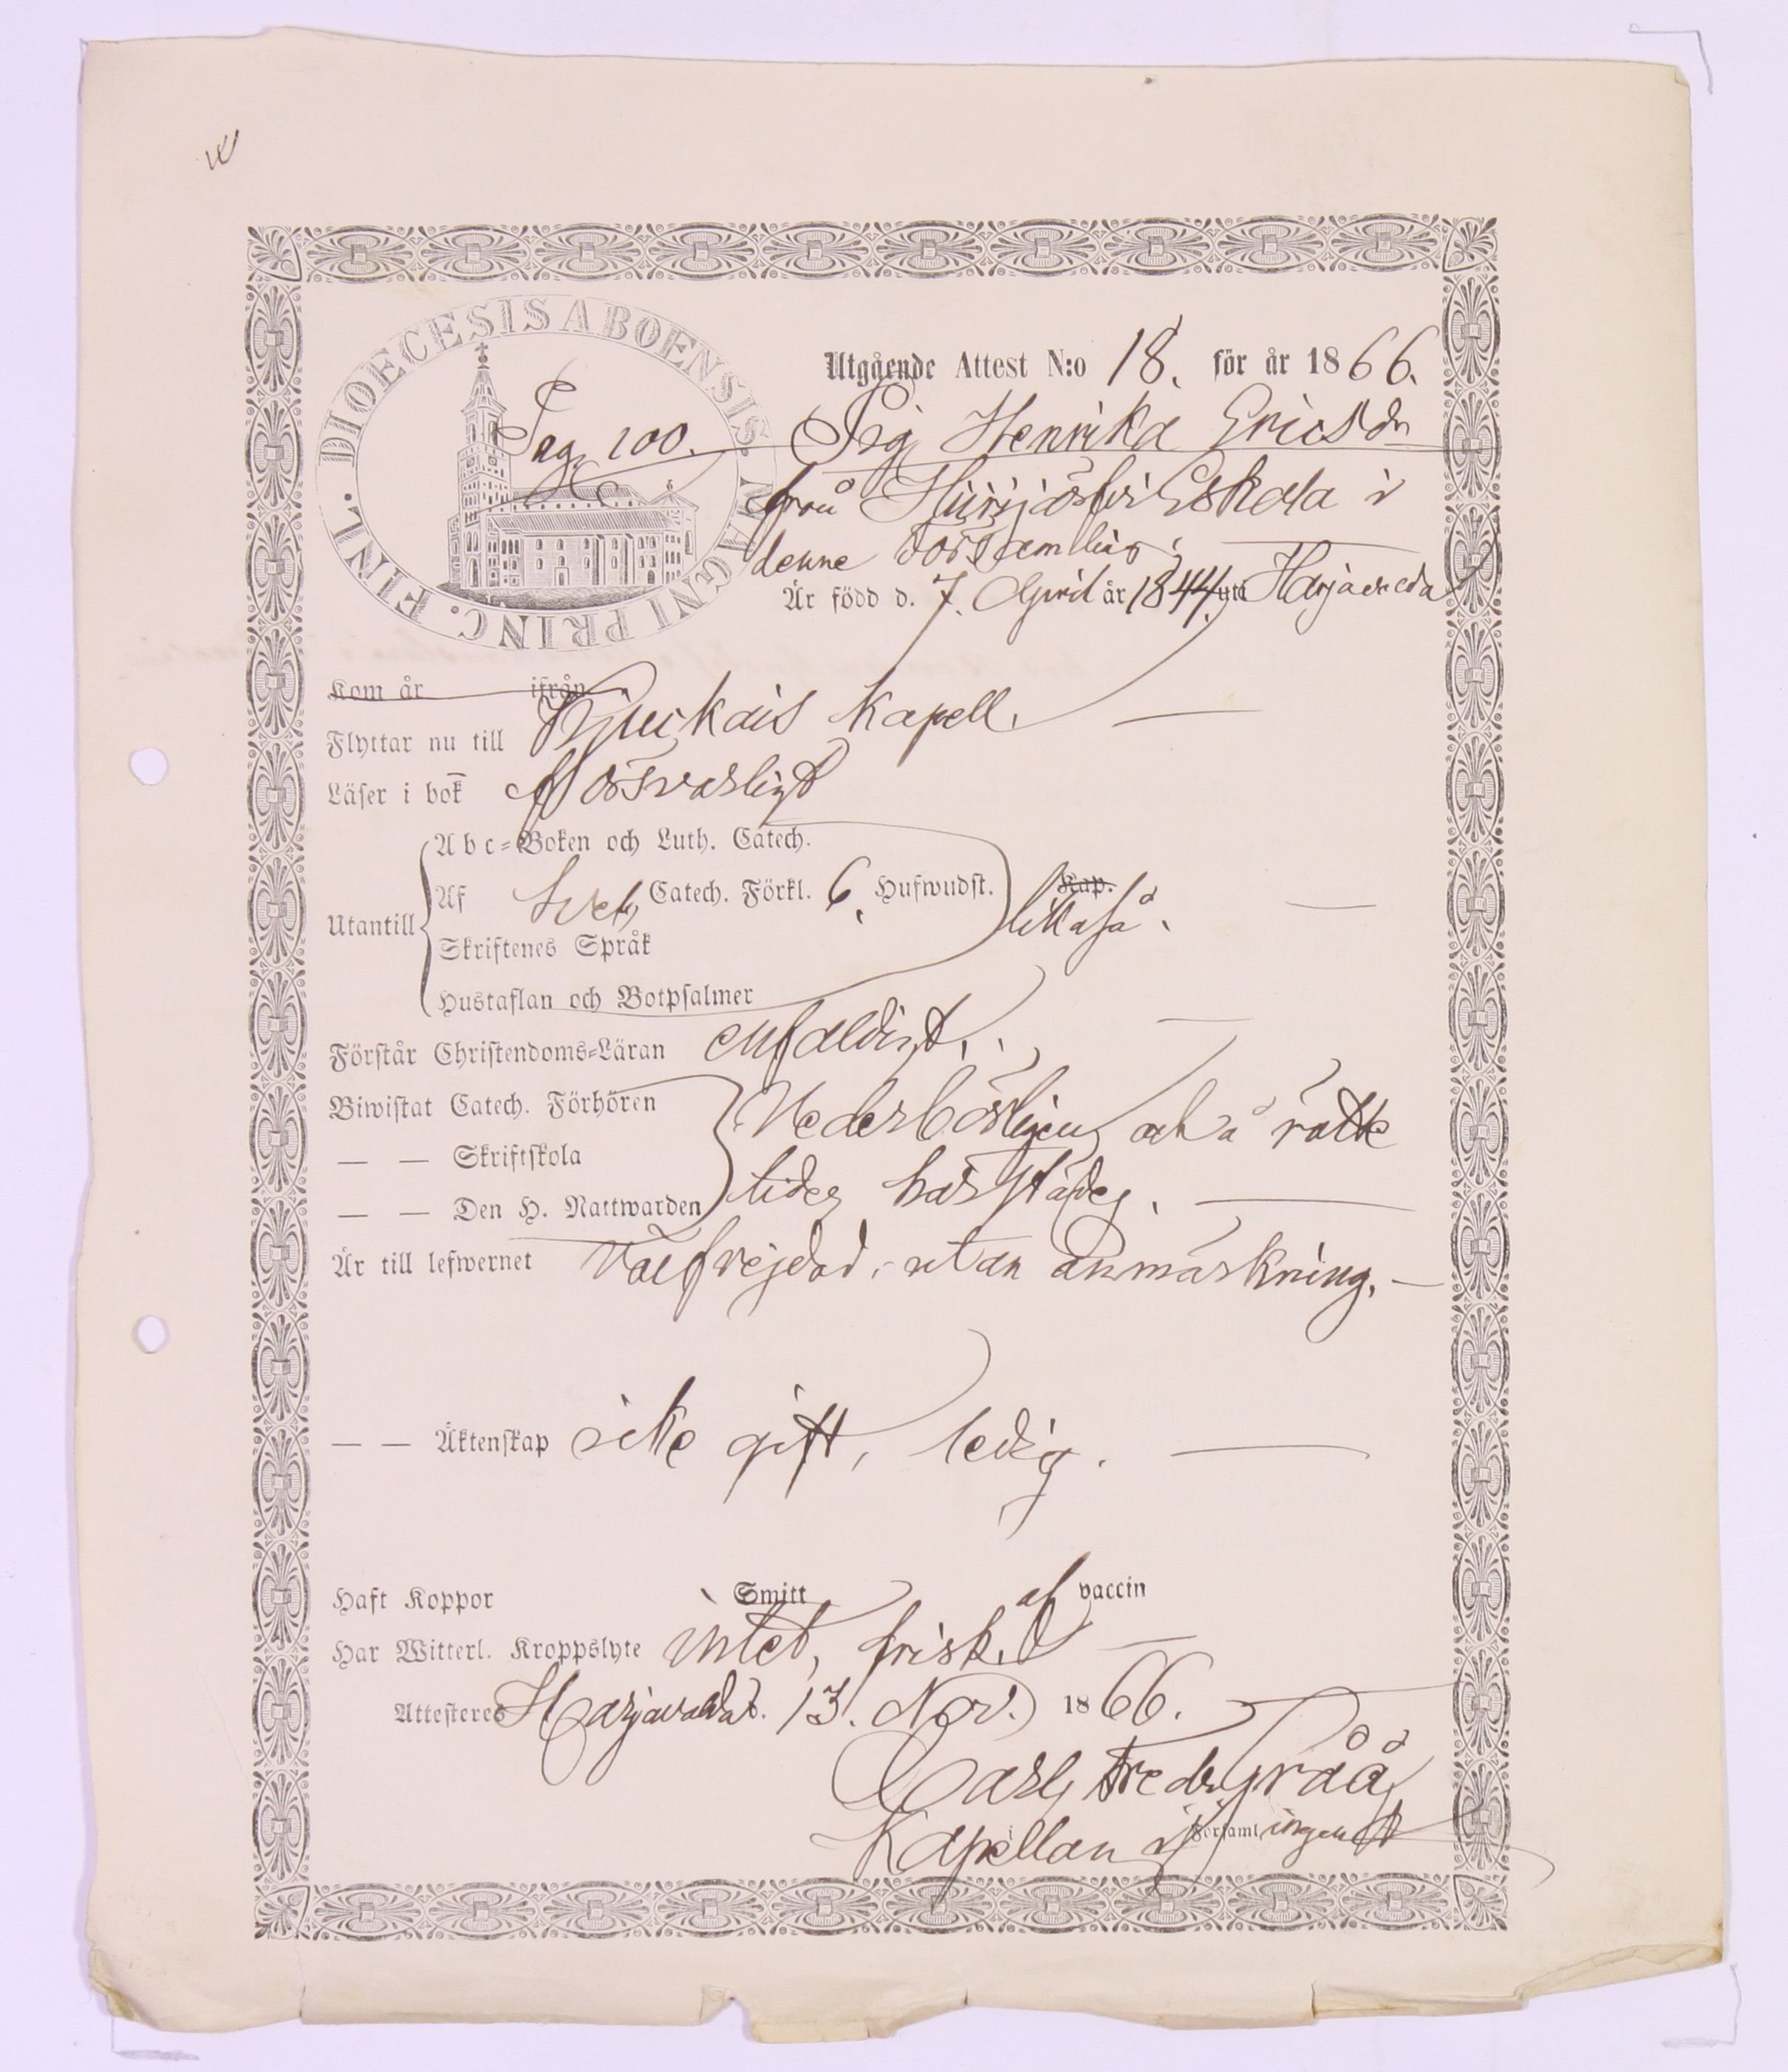 DIOECESIS ABOENSIS. MAGNI PRINC. FINL.
Utgående Attest N:o 18. för år 1866.
Pag. 100. Pig. Henrika Ericsdr
från Harjaslvi Eskola i
denne Församling;
Är född d. 7. April år 1844. uti Harjavalda
Kom år ifrån
Flyttar nu till Kjuckais Kapell.
Läser i bok försvarligt
Abc=Boken och Luth. Catech.
Utantill Af Sveb. Catech. Förkl. 6. Hufwudst. Kap. likaså.
Skriftenes Språk
Hustaflan och Botpsalmer
Förstår Christendoms=Läran enfaldigt.
Biwistat Catech. Förhören
— — Skriftskola Vederbörligen och å rätte
— — Den H. Nattwarden tider härstädes.
Är till lefwernet välfrejdad, utan anmärkning.
— — Äktenskap icke gift, ledig.
Haft Koppor Smitt af vaccin
Har Witterl. Kroppslyte intet, frisk.
Attesteres Harjavalda d. 13. Nov. 1866.
Carl Fredr Gråå
Kapellan i Församlingen